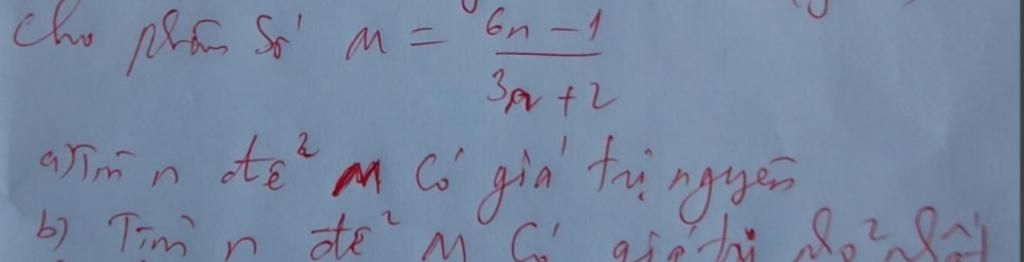 Cho phân số M = 6n - 1 / 3n + 2
a) Tìm n để M có giá trị nguyên
b) Tìm n để M có giá trị nhỏ nhất